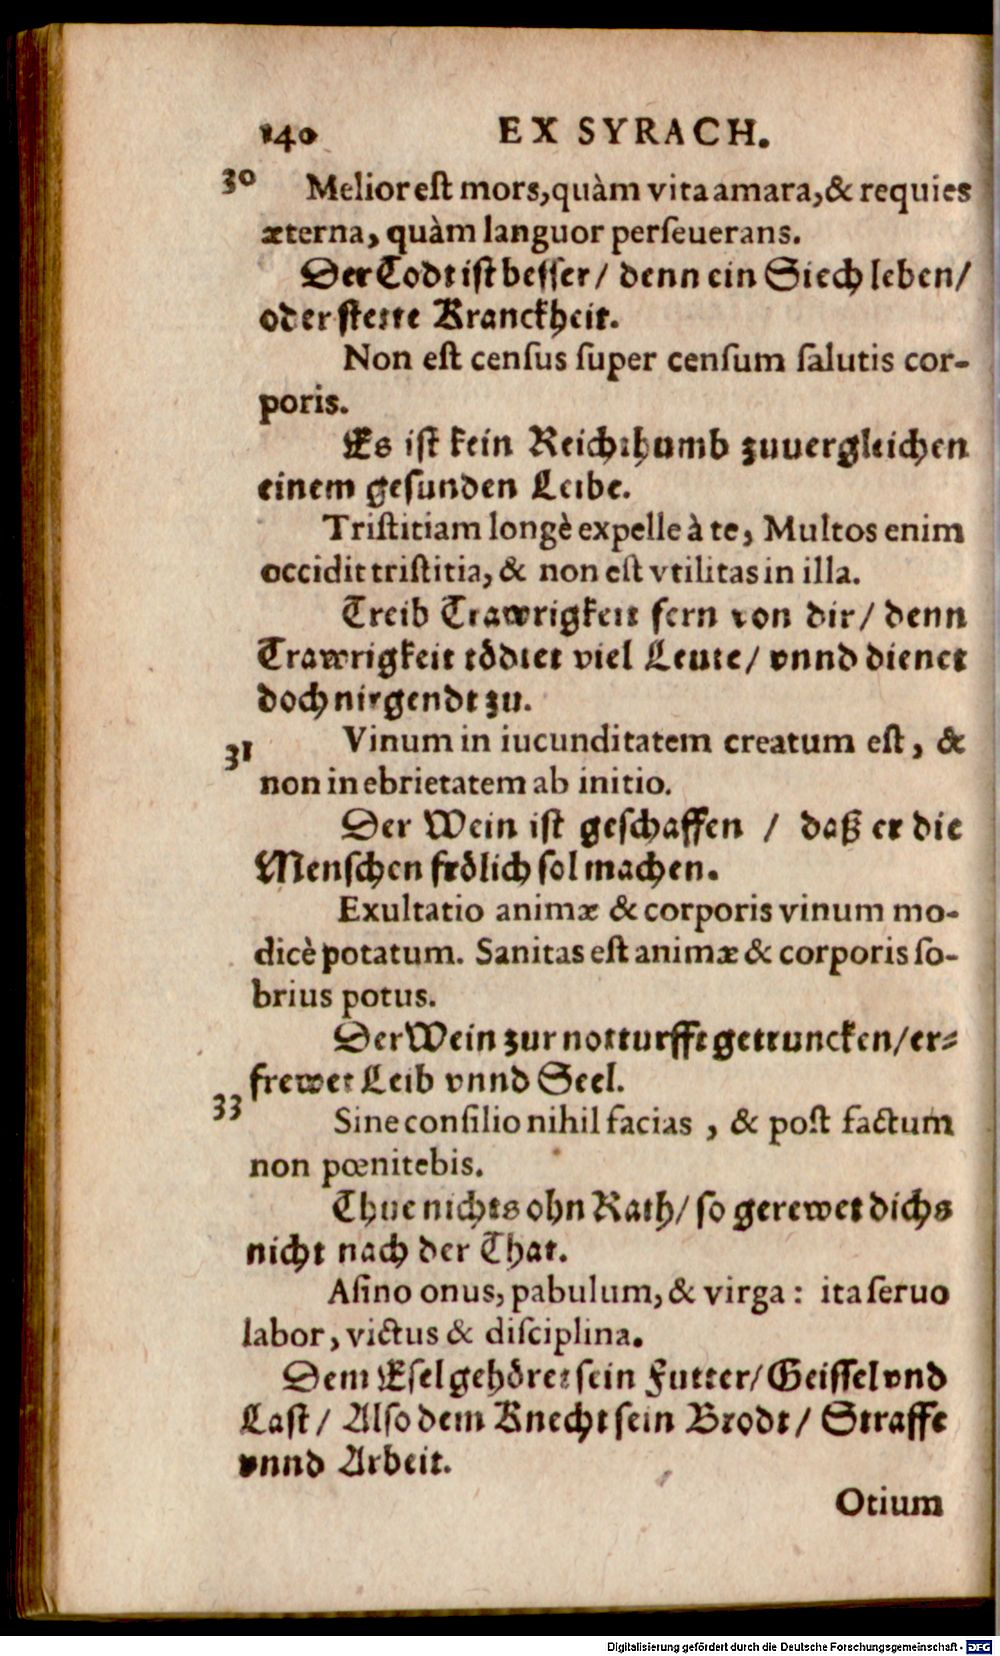 140 EX SYRACH.
30 Melior eſt mors, quàm vita amara, & requies
æterna, quàm languor perſeuerans.
Der Todt iſt beſſer / denn ein Siech leben /
oder ſtette Kranckheit.
Non eſt cenſus ſuper cenſum ſalutis cor-
poris.
Es iſt kein Reichthumb zuuergleichen
einem geſunden Leibe.
Triſtitiam longè expelle à te, Multos enim
occidit triſtitia, & non eſt vtilitas in illa.
Treib Trawrigkeit fern von dir / denn
Trawrigkeit tödtet viel Leute / vnnd dienet
doch nirgendt zu.
31 Vinum in iucunditatem creatum eſt, &
non in ebrietatem ab initio.
Der Wein iſt geſchaffen / daß er die
Menſchen frölich ſol machen.
Exultatio animæ & corporis vinum mo-
dicè potatum. Sanitas eſt animæ & corporis ſo-
brius potus.
Der Wein zur notturfft getruncken / er-
frewet Leib vnnd Seel.
33 Sine conſilio nihil facias, & poſt factum
non pœnitebis.
Thue nichts ohn Rath / ſo gerewet dichs
nicht nach der That.
Aſino onus, pabulum, & virga: ita ſeruo
labor, victus & diſciplina.
Dem Eſel gehöret ſein Futter / Geiſſel vnd
Laſt / Alſo dem Knecht ſein Brodt / Straffe
vnnd Arbeit.
Otium
Digitalisierung gefördert durch die Deutsche Forschungsgemeinschaft - DFG